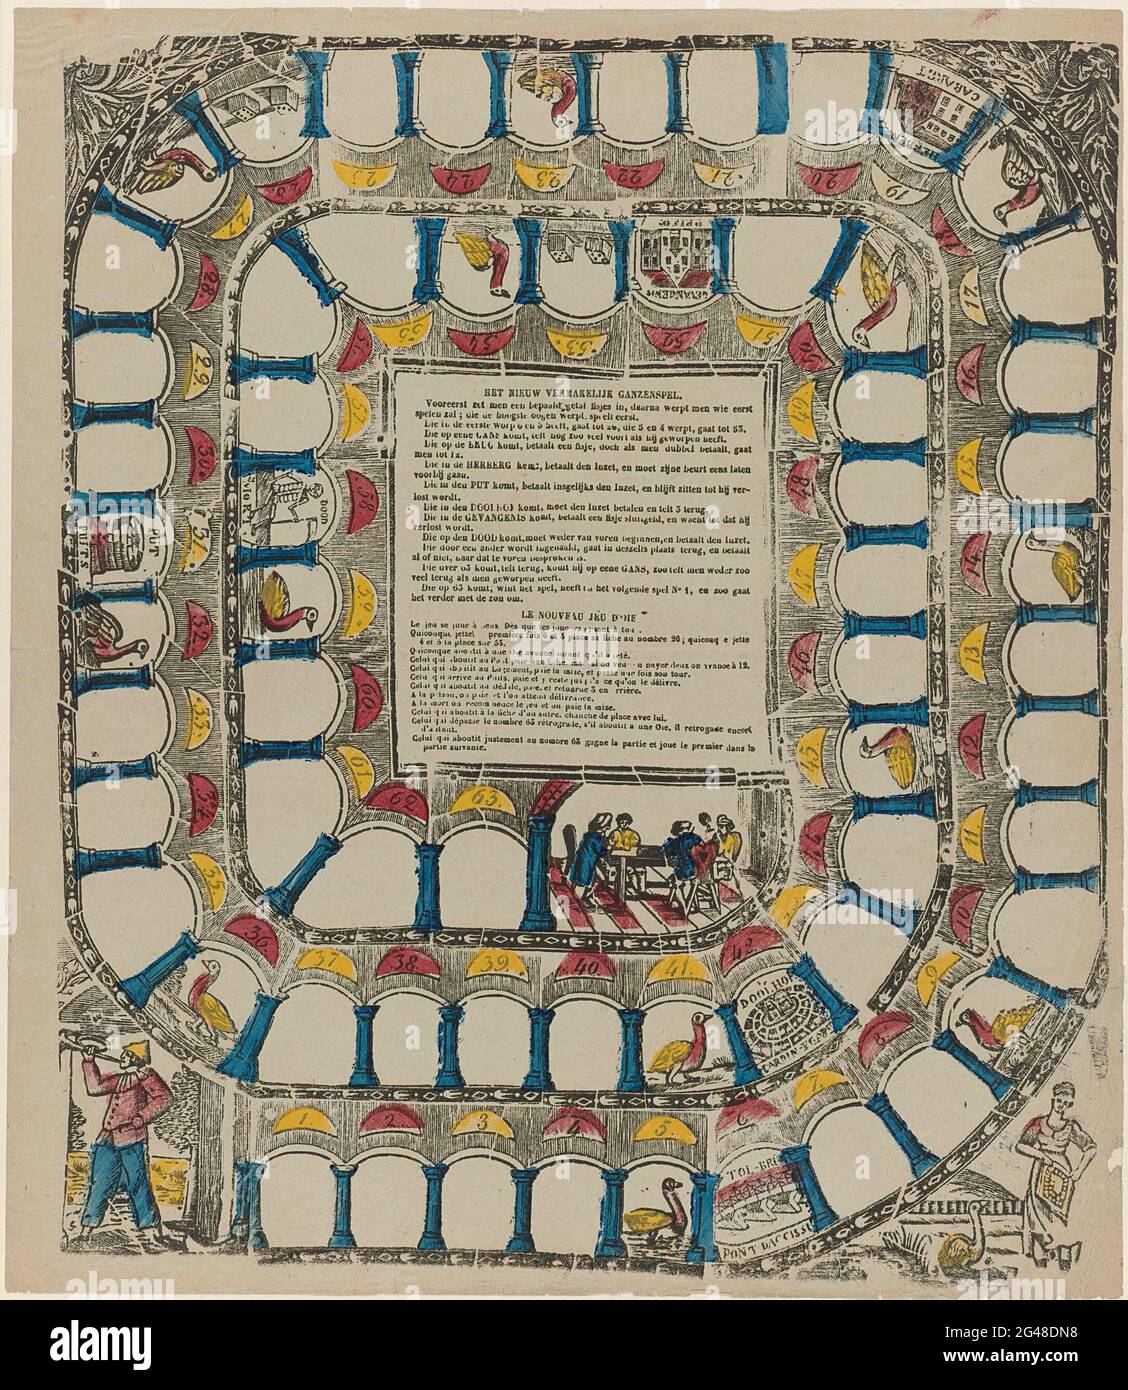 HET NIEUW VERMAKELIJK GANZENSPEL.
Vooreerst zet men een bepaald getal fisjes in, daarna werpt men wie eerst
spelen zal; die de hoogste oogen werpt, speelt eerst.
Die in de eerste worp 6 en 3 heeft, gaat tot 26, die 5 en 4 werpt, gaat tot 53.
Die op eene GANS komt, telt nog zoo veel voort als hij geworpen heeft.
Die op de BRUG komt, betaalt een fisje, doch als men dubbel betaalt, gaat
men tot 12.
Die in de HERBERG komt, betaalt den Inzet, en moet zijne beurt eens laten
voorbij gaan.
Die in den PUT komt, betaalt insgelijks den Inzet, en blijft zitten tot hij ver-
lost wordt.
Die in den DOOLHOF komt, moet den Inzet betalen en telt 3 terug.
Die in de GEVANGENIS komt, betaalt een fisje sluitgeld, en wacht tot dat hij
verlost wordt.
Die op den DOOD komt, moet weder van voren beginnen, en betaalt den Inzet.
Die door een ander wordt ingehaald, gaat in deszelfs plaats terug, en betaalt
al of niet, naar dat te voren besproken is.
Die over 63 komt, telt terug, komt hij op eene GANS, zoo telt men weder zoo
veel terug als men geworpen heeft.
Die op 63 komt, wint het spel, heeft in het volgende spel Nº 1, en zoo gaat
het verder met de zon om.
LE NOUVEAU JEU D'OIE
Le jeu se joue à deux Dés
Quiconque jette première fois 6 et 3 place sa fiche au nombre 26; quiconque jette
4 et 5 la place sur 53.
Quiconque aboutit à une Oie avance autant qu'il a jeté.
Celui qui aboutit au Pont paie une fiche, payer deux on avance à 12.
Celui qui aboutit au Logement, paie la mise, et passe une fois son tour.
Celui qui arrive au Puits, paie et y reste jusqu'à ce qu'on le délivre.
Celui qui aboutit au Dédale, paie, et retourne 3 en arrière.
A la prison, on paie et l'on attend délivrance.
A la mort on recommence le jeu et on paie la mise.
Celui qui aboutit à la fiche d'un autre, change de place avec lui.
Celui qui dépasse le nombre 63 rétrograde, s'il aboutit à une Oie, il rétrograde encore
d'autant.
Celui qui aboutit justement au nombre 63 gagne la partie et joue le premier dans la
partie suivante.
1.
2
3
4
5
6
TOL-BR
PONT D'ACCISE
7.
8
9
10
11
12
13
14
15
16
17
18
19
CABARET
20
21
22
23
24
25
26
27
28
29
30
31
PUT
PUITS
32
33
34
35
36
37
38
39
40
41
42
DOOLHOF
JARDIN
43
44
45
46
47
48
49
50
51
52
GEVANGENIS
PRISON
53
54
55
56
57
58
DOOD
MORT
59
60
61
62
63
alamy
Image ID: 2G48DN8
www.alamy.com